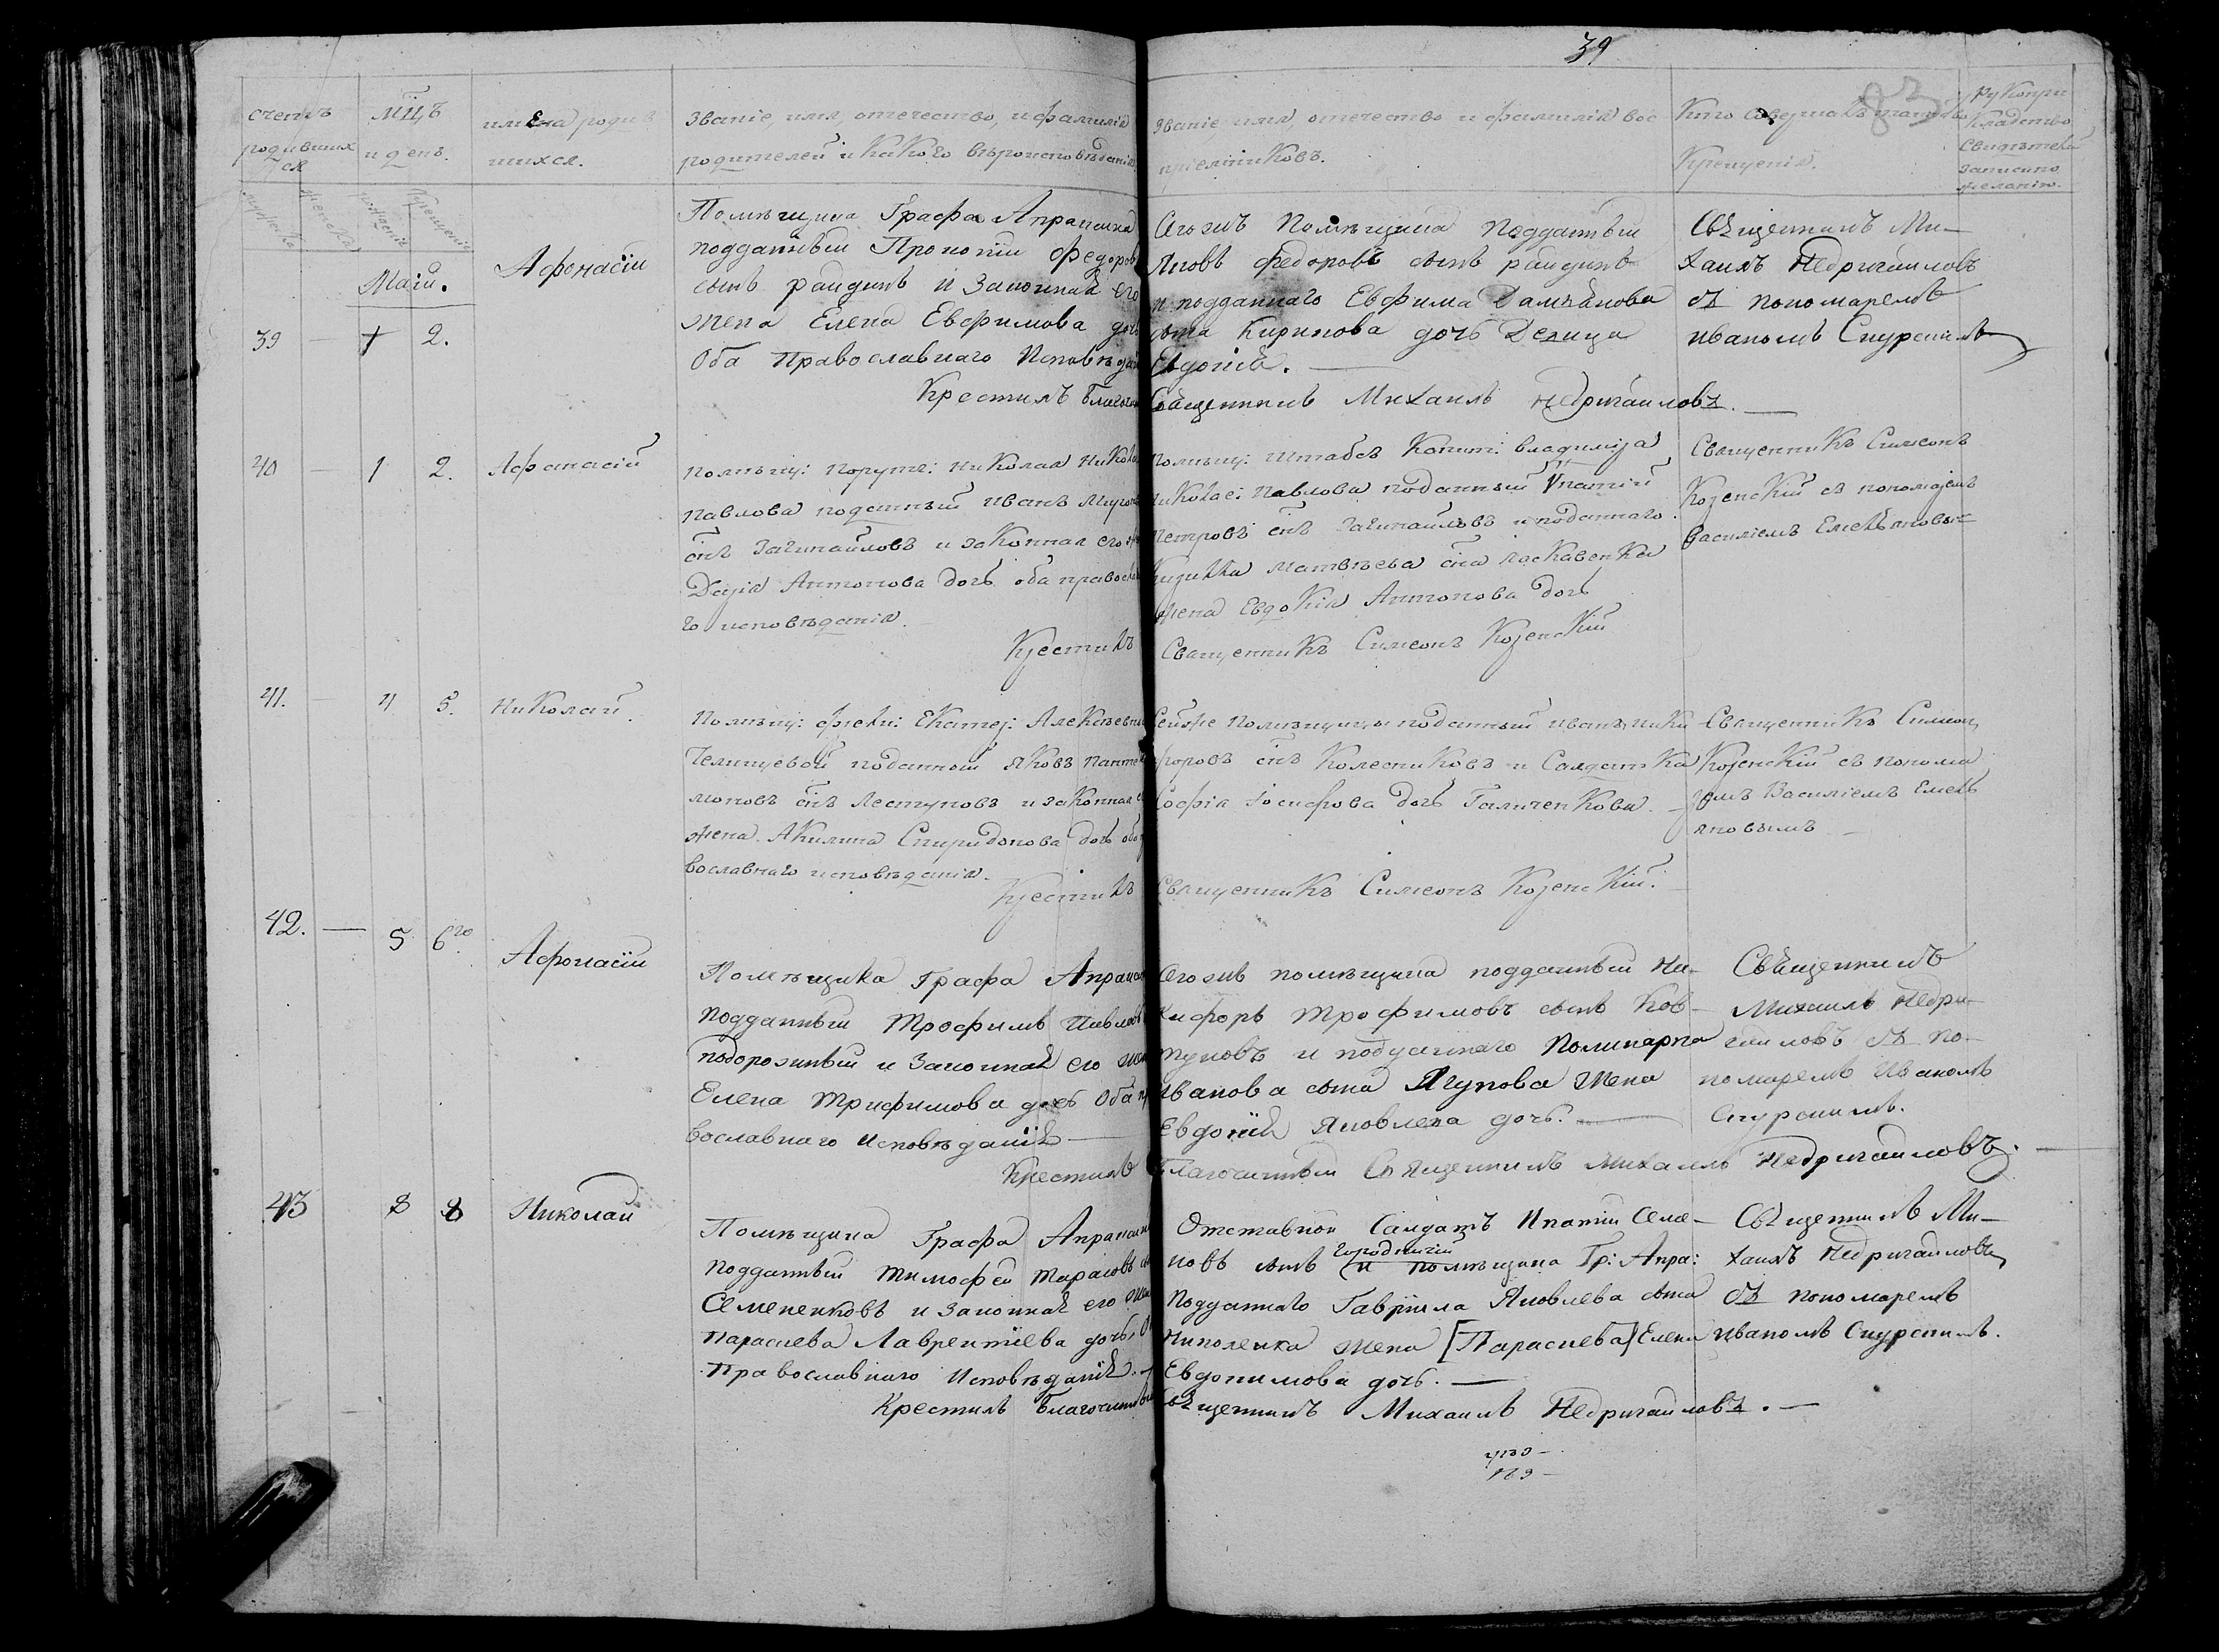 39
83
счетъ родившихся
мцъ и день.
имена родившихся.
Званіе, имя, отечество, и фамилія
родителей и какого вѣроисповѣданія
Званіе имя, отечество и фамилія вос
пріемниковъ.
Кто совершалъ таинство
Крещенія.
Рукопри
кладство
свидѣтелей
записано
желанію.
мужеска
женска
рожденія
крещенія
Маія.
39 — 1 2.
Афонасій
Помѣщика Графа Апраксина
подданный Прокопій Федоровъ
сынъ Райдинъ и Законная его
жена Елена Евфимова дочь
Оба Православнаго Исповѣдан
Крестилъ Благоч
Сегожъ Помѣщика Подданный
Яковъ Федоровъ сынъ Райдинъ
и подданнаго Евфима Дамъянова
сына Кирикова дочь Девица
Евдокія. —
Свѣщенникъ Михаилъ Недригайловъ. —
Свѣщенникъ Ми-
хаилъ Недригайловъ
съ пономаремъ
Иваномъ Снурснимъ
40 — 1 2.
Афанасій
Помѣщ: Поруч: Николая Никола
Павлова поданный Иванъ
снъ Загинайловъ и законная его
Дарія Антонова дочь оба правосла
го исповѣданія.
Крестилъ
Помѣщ: Штабсъ Капит: Владиміра
Николае: Павлова поданный Ѵпатій
Петровъ снъ Загинайловъ и поданнаго
Кирилла Матвѣева сна Ласкавенка
жена Евдокія Антонова дочь
Священникъ Симеонъ Козенскій
Священникъ Симеонъ
Козенскій съ пономаремъ
Василіемъ Емельяновым
41. — 4 5.
Николай.
Помѣщ: Екатер: Алексѣевны
Челищевой поданный Яковъ Панте
моновъ снъ Лестуновъ и законная
жена Акилина Спиридонова дочь оба
вославнаго исповѣданія.
Крестилъ
Сейже Помѣщицы поданный Иванъ Ники
форовъ снъ Колесниковъ и Салдатка
Софія Іосифова дочь Галиченкова. —
Священникъ Симеонъ Козенскій.
Священникъ Симеон
Козенскій съ понома
ремъ Василіемъ Емель
яновымъ —
42. — 5 6го
Афонасій
Помѣщика Графа Апракси
Подданный Трофимъ Павловъ
подорожный и Законная его жен
Елена Трифимова дочь Оба пр
вославнаго Исповѣданія —
Крестилъ
Сегожъ помѣщика подданный Ни-
кифоръ Трофимовъ сынъ Ков-
туновъ и подданнаго Поликарпа
Иванова сына Ягупова Жена
Евдокія Яковлева дочь. —
Благочинный Священникъ Михаилъ Недригайловъ. —
Свѣщенникъ
Михаилъ Недри-
гайловъ съ по-
номаремъ Иваномъ
Снурснимъ.
43 8 8
Николай
Помѣщика Графа Апраксина
подданный Тимофей Тарасовъ
Семененковъ и Законная его Же
Параскева Лаврентіева дочь, О
Православнаго Исповѣданія. —
Крестилъ Благочинный
Отставной Салдатъ Ипатій Семе-
новъ сынъ Городничій и помѣщика Гр: Апра:
Подданнаго Гавріила Яковлева сына
Николенка жена [Параскева] Елена
Евдокимова дочь. —
Свѣщенникъ Михаилъ Недригайловъ. —
Свѣщенникъ Ми-
хаилъ Недригайловъ
съ пономаремъ
Иваномъ Снурснимъ.